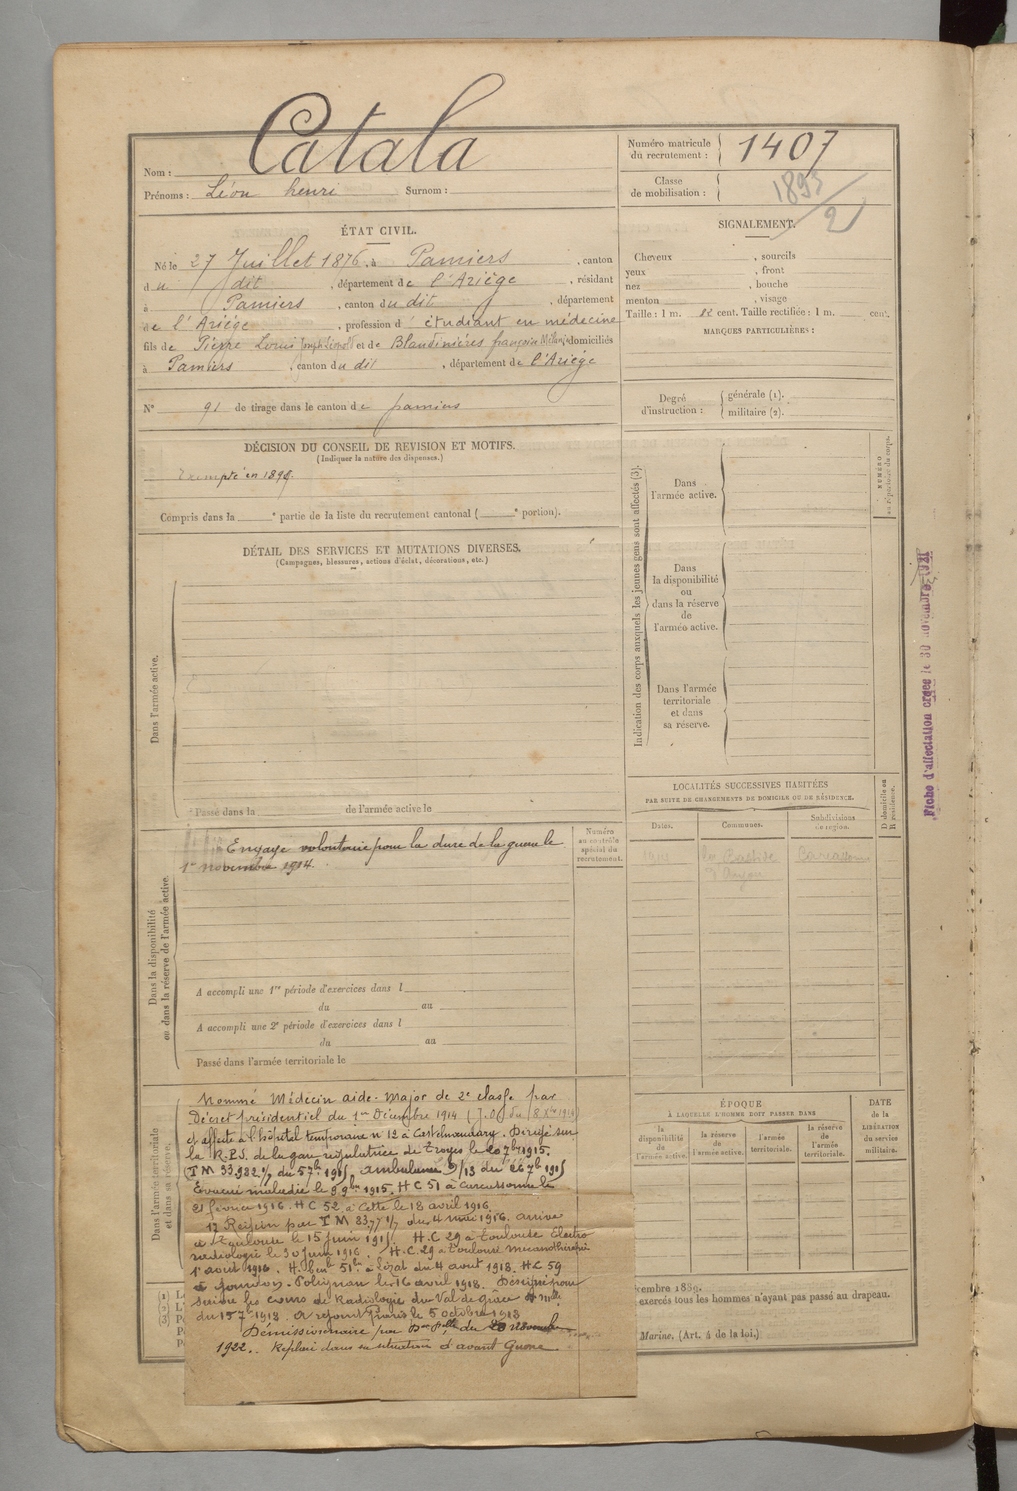 Nom : Catala
Prénoms : Léon henri Surnom :
Numéro matricule du recrutement : 1407
Classe de mobilisation : 1895/2
ÉTAT CIVIL.
Né le 27 Juillet 1876, à Pamiers, canton
du dit, département de l'Ariège, résidant
à Pamiers, canton du dit, département
de l'Ariège, profession d' étudiant en médecine
fils de Pierre Louis et de Blandinières françoise domiciliés
à Pamiers, canton du dit, département de l'Ariège
N° 91 de tirage dans le canton de pamiers
SIGNALEMENT.
Cheveux , sourcils
yeux , front
nez , bouche
menton , visage
Taille : 1 m. 82 cent. Taille rectifiée : 1 m. cent.
MARQUES PARTICULIÈRES :
Degré d'instruction : générale (1).
militaire (2).
DÉCISION DU CONSEIL DE REVISION ET MOTIFS.
(Indiquer la nature des dispenses.)
Exempté en 1898.
Compris dans la e partie de la liste du recrutement cantonal ( e portion).
DÉTAIL DES SERVICES ET MUTATIONS DIVERSES.
(Campagnes, blessures, actions d'éclat, décorations, etc.)
Dans l'armée active.
Passé dans la de l'armée active le
Indication des corps auxquels les jeunes gens sont affectés (3).
NUMÉRO au répertoire du corps.
Dans
l'armée active.
Dans
la disponibilité
ou
dans la réserve
de
l'armée active.
Dans l'armée
territoriale
et dans
sa réserve.
Fiche d'affectation créée le 30 novembre 1921
LOCALITÉS SUCCESSIVES HABITÉES
PAR SUITE DE CHANGEMENTS DE DOMICILE OU DE RÉSIDENCE.
Dates. Communes. Subdivisions de région. D domicile ou R résidence.
La Bastide Carcassonne
d'Anjou
Dans la disponibilité
ou dans la réserve de l'armée active.
Numéro au contrôle spécial du recrutement.
Engagé volontaire pour la durée de la guerre le
1er novembre 1914.
A accompli une 1re période d'exercices dans l
du au
A accompli une 2e période d'exercices dans l
du au
Passé dans l'armée territoriale le
Dans l'armée territoriale
et dans sa réserve.
Nommé Médecin aide-Major de 2e classe par
Décret présidentiel du 1er Décembre 1914 (J.O. du 8 Xbre 1914)
et affecté à l'hôpital temporaire n 12 à Castelnaudary. Dirigé sur
la R.P.S. de la gare régulatrice de Troyes le 20 7bre 1915.
(T M 33.982 1/7 du 5 7bre 1915. ambulance 9/13 du 26 7b 1915
Évacué maladie le 9 9bre 1915. H C 51 à Carcassonne le
21 février 1916. H C 52 à Cette le 18 avril 1916.
17 Région par T M 8377 1/7 du 4 mai 1916. arrivé
à Toulouse le 15 juin 191 H.C 29 à Toulouse Electro
radiologie le 30 Juin 1916. H.C. 29 à Toulouse mecanothérapie
1er aout 1916. H. 51 à Lézat du 4 aout 1918. H.C 59
à gourdan-Polignan le 16 avril 1918. Désigné pour
suivre les cours de Radiologie du Val de grâce
du 15 7b 1918. a rejoint Paris le 5 octobre 1918
Démissionnaire par Don Pelle du
1922. Replacé dans sa situation d'avant Guerre
ÉPOQUE
À LAQUELLE L'HOMME DOIT PASSER DANS
la disponibilité de l'armée active. la réserve de l'armée active. l'armée territoriale. la réserve de l'armée territoriale.
DATE
de la
LIBÉRATION
du service
militaire.
cembre 1889.
exercés tous les hommes n'ayant pas passé au drapeau.
Marine, (Art. 4 de la loi.)